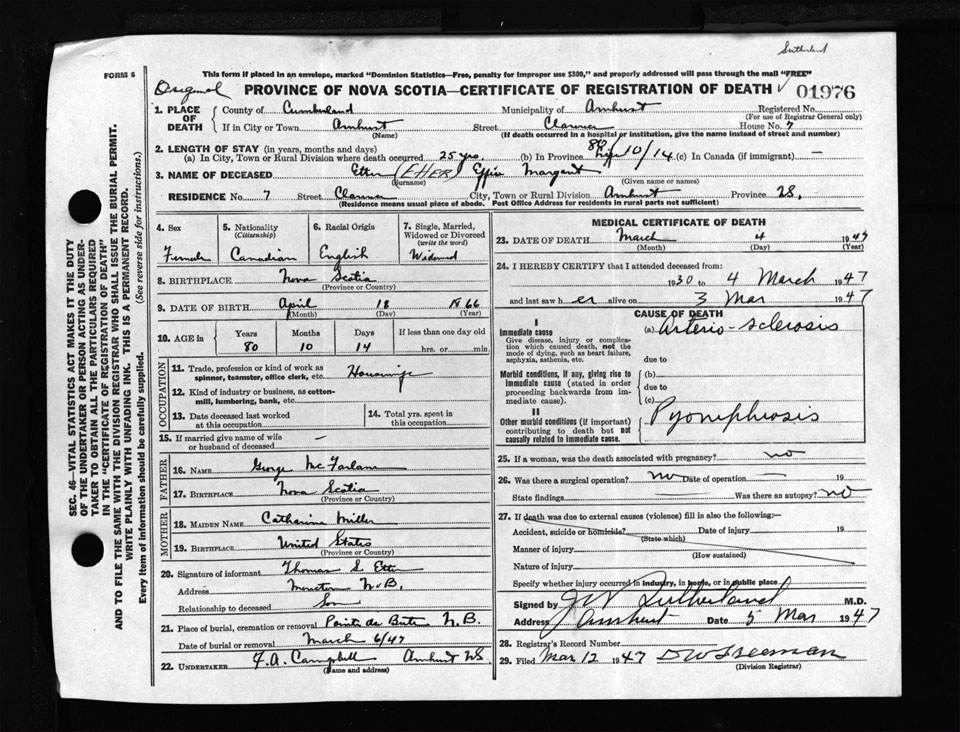 Sutherland
FORM 6
This form if placed in an envelope, marked "Dominion Statistics—Free, penalty for improper use $300," and properly addressed will pass through the mail "FREE"
Original PROVINCE OF NOVA SCOTIA—CERTIFICATE OF REGISTRATION OF DEATH 01976
1. PLACE OF DEATH County of Cumberland Municipality of Amherst Registered No.
(For use of Registrar General only)
If in City or Town Amherst Street Clarence House No. 7
(Name) (If death occurred in a hospital or institution, give the name instead of street and number)
2. LENGTH OF STAY (in years, months and days)
(a) In City, Town or Rural Division where death occurred 25 yrs. (b) In Province 80/10/14 (c) In Canada (if immigrant) —
3. NAME OF DECEASED Etter (ETTER) Effie Margaret
(Surname) (Given name or names)
RESIDENCE No. 7 Street Clarence City, Town or Rural Division Amherst Province NS.
(Residence means usual place of abode. Post Office Address for residents in rural parts not sufficient)
4. Sex 5. Nationality (Citizenship) 6. Racial Origin 7. Single, Married, Widowed or Divorced (write the word)
Female Canadian English Widowed
8. BIRTHPLACE Nova Scotia
(Province or Country)
9. DATE OF BIRTH April 18 1866
(Month) (Day) (Year)
10. AGE in Years Months Days If less than one day old
80 10 14 hrs. or min.
OCCUPATION
11. Trade, profession or kind of work as spinner, teamster, office clerk, etc. Housewife
12. Kind of industry or business, as cotton-mill, lumbering, bank, etc.
13. Date deceased last worked at this occupation 14. Total yrs. spent in this occupation
15. If married give name of wife or husband of deceased —
FATHER
16. NAME George McFarlane
17. BIRTHPLACE Nova Scotia
(Province or Country)
MOTHER
18. MAIDEN NAME Catharine Miller
19. BIRTHPLACE United States
(Province or Country)
20. Signature of informant Thomas S Etter
Address Moncton N.B.
Relationship to deceased Son
21. Place of burial, cremation or removal Pointe de Bute N.B.
Date of burial or removal March 6/47
22. UNDERTAKER F.A. Campbell Amherst NS
(Name and address)
MEDICAL CERTIFICATE OF DEATH
23. DATE OF DEATH March 4 1947
(Month) (Day) (Year)
24. I HEREBY CERTIFY that I attended deceased from:
1930 to 4 March 1947
and last saw her alive on 3 Mar 1947
CAUSE OF DEATH
I
Immediate cause (a) Arterio-sclerosis
Give disease, injury or complication which caused death, not the mode of dying, such as heart failure, asphyxia, asthenia, etc.
due to
Morbid conditions, if any, giving rise to immediate cause (stated in order proceeding backwards from immediate cause). (b)
due to
(c)
II
Other morbid conditions (if important) contributing to death but not causally related to immediate cause. Pyonephrosis
25. If a woman, was the death associated with pregnancy? no
26. Was there a surgical operation? no Date of operation — 19
State findings Was there an autopsy? no
27. If death was due to external causes (violence) fill in also the following:—
Accident, suicide or homicide? Date of injury 19
(State which)
Manner of injury
(How sustained)
Nature of injury
Specify whether injury occurred in industry, in home, or in public place
Signed by Sutherland M.D.
Address Amherst Date 5 Mar 1947
28. Registrar's Record Number
29. Filed Mar 12 1947 DW Freeman
(Division Registrar)
SEC. 46—VITAL STATISTICS ACT MAKES IT THE DUTY
OF THE UNDERTAKER OR PERSON ACTING AS UNDER-
TAKER TO OBTAIN ALL THE PARTICULARS REQUIRED
IN THE "CERTIFICATE OF REGISTRATION OF DEATH"
AND TO FILE THE SAME WITH THE DIVISION REGISTRAR WHO SHALL ISSUE THE BURIAL PERMIT.
WRITE PLAINLY WITH UNFADING INK. THIS IS A PERMANENT RECORD.
Every Item of Information should be carefully supplied. (See reverse side for instructions.)